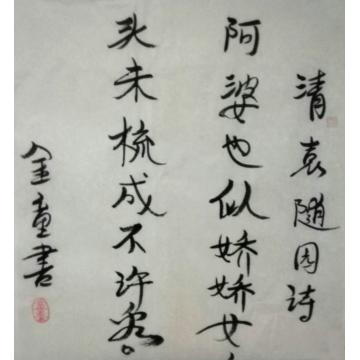 清袁随园诗
阿婆也似娇娇女
头未梳成不许看。
金童書